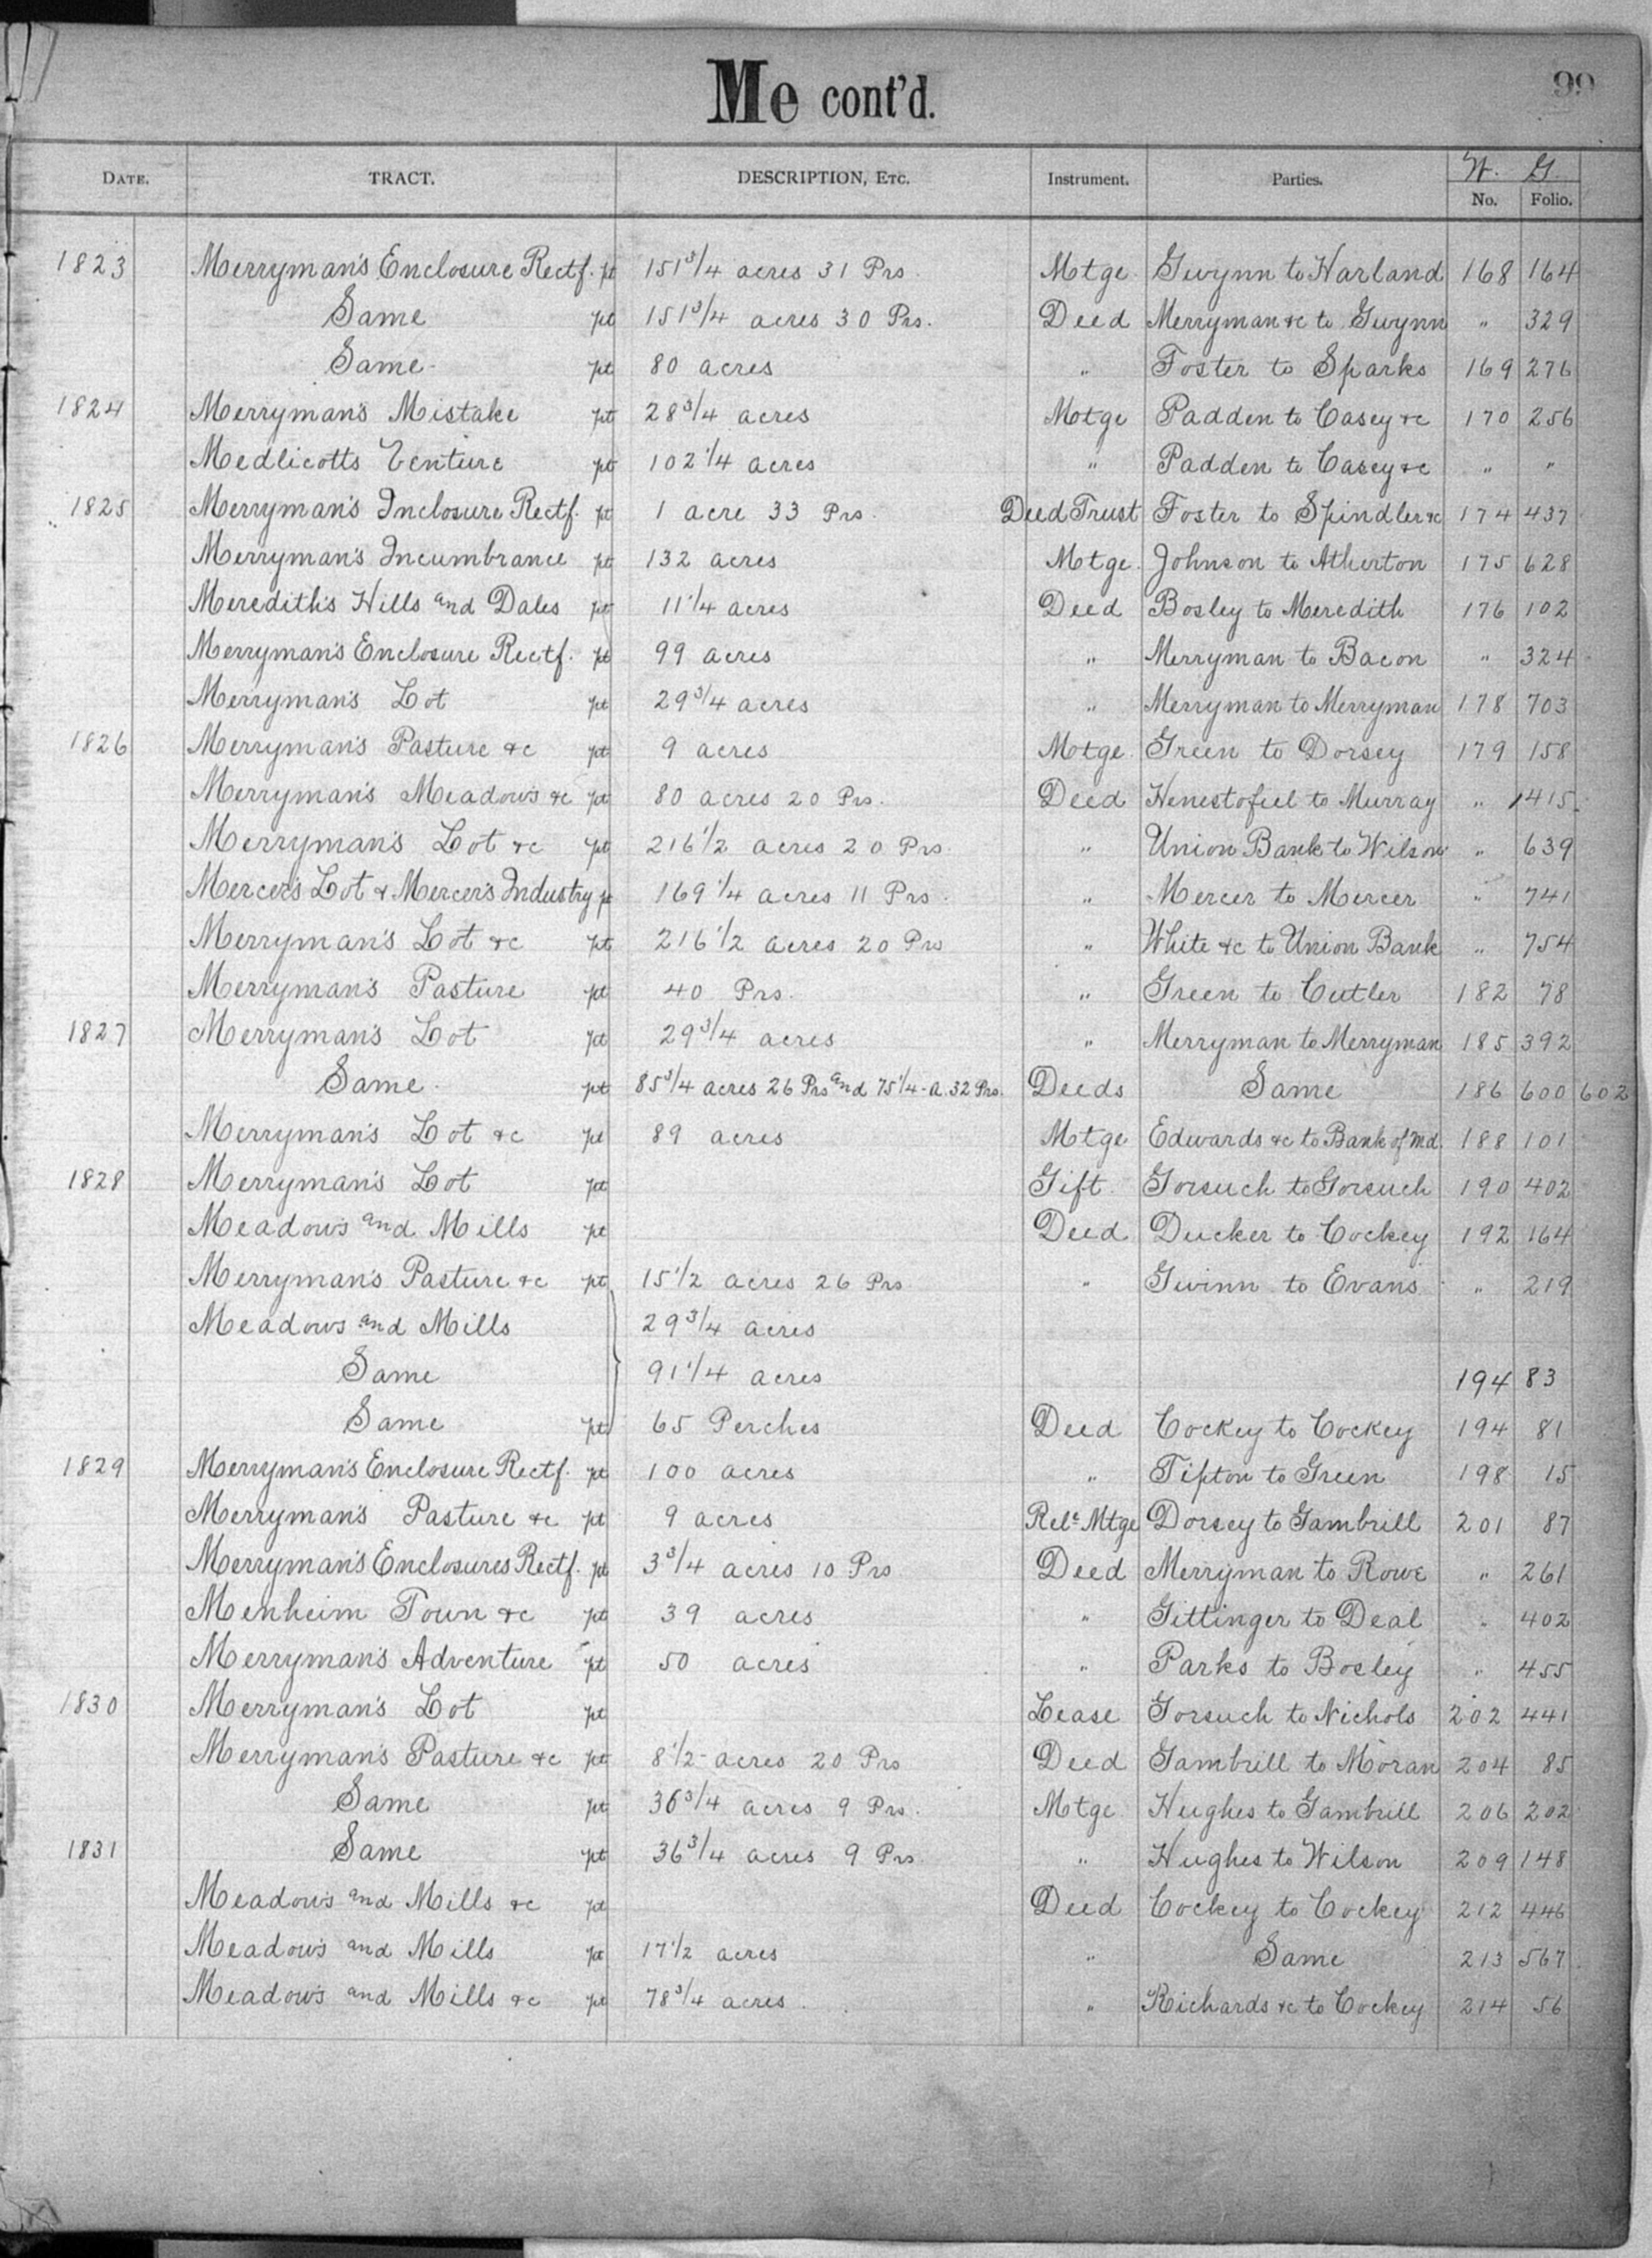 Me cont'd.
99
DATE. TRACT. DESCRIPTION, ETC. Instrument. Parties. W. G.
No. Folio.
1823 Merryman's Enclosure Rectf. pt 151 3/4 acres 31 Prs. Motge Gwynn to Harland 168 164
Same pt 151 3/4 acres 30 Prs. Deed Merryman &c to Gwynn " 329
Same pt 80 acres " Foster to Sparks 169 276
1824 Merryman's Mistake pt 28 3/4 acres Motge Padden to Casey &c 170 256
Medlicotts Venture pt 102 1/4 acres " Padden to Casey &c " "
1825 Merryman's Inclosure Rectf. pt 1 acre 33 Prs. Deed Trust Foster to Spindler &c 174 437
Merryman's Incumbrance pt 132 acres Motge. Johnson to Atherton 175 628
Meredith's Hills and Dales pt 11 1/4 acres Deed Bosley to Meredith 176 102
Merryman's Enclosure Rectf. pt 99 acres " Merryman to Bacon " 324
Merryman's Lot pt 29 3/4 acres " Merryman to Merryman 178 703
1826 Merryman's Pasture &c pt 9 acres Motge. Green to Dorsey 179 158
Merryman's Meadows &c pt 80 acres 20 Prs. Deed Henestofeel to Murray " 415
Merryman's Lot &c pt 216 1/2 acres 20 Prs. " Union Bank to Wilson " 639
Mercer's Lot & Mercer's Industry pt 169 1/4 acres 11 Prs. " Mercer to Mercer " 741
Merryman's Lot &c pt 216 1/2 acres 20 Prs " White &c to Union Bank " 754
Merryman's Pasture pt 40 Prs. " Green to Cutler 182 78
1827 Merryman's Lot pt 29 3/4 acres " Merryman to Merryman 185 392
Same pt 85 3/4 acres 26 Prs and 75 1/4 a. 32 Prs. Deeds Same 186 600 602
Merryman's Lot &c pt 89 acres Motge Edwards &c to Bank of Md. 188 101
1828 Merryman's Lot pt Gift Gorsuch to Gorsuch 190 402
Meadows and Mills pt Deed Ducker to Cockey 192 164
Merryman's Pasture &c pt 15 1/2 acres 26 Prs. " Gwinn to Evans " 219
Meadows and Mills 29 3/4 acres
Same 91 1/4 acres 194 83
Same pt 65 Perches Deed Cockey to Cockey 194 81
1829 Merryman's Enclosure Rectf. pt 100 acres " Tipton to Green 198 15
Merryman's Pasture &c pt 9 acres Rele Mtge Dorsey to Gambrill 201 87
Merryman's Enclosures Rectf. pt 3 3/4 acres 10 Prs Deed Merryman to Rowe " 261
Menheim Town &c pt 39 acres " Gittinger to Deal " 402
Merryman's Adventure pt 50 acres " Parks to Bosley " 455
1830 Merryman's Lot pt Lease Gorsuch to Nichols 202 441
Merryman's Pasture &c pt 8 1/2 acres 20 Prs Deed Gambrill to Moran 204 85
Same pt 36 3/4 acres 9 Prs. Motge Hughes to Gambrill 206 202
1831 Same pt 36 3/4 acres 9 Prs. " Hughes to Wilson 209 148
Meadows and Mills &c pt Deed Cockey to Cockey 212 446
Meadows and Mills pt 17 1/2 acres " Same 213 567
Meadows and Mills &c pt 78 3/4 acres " Richards &c to Cockey 214 56